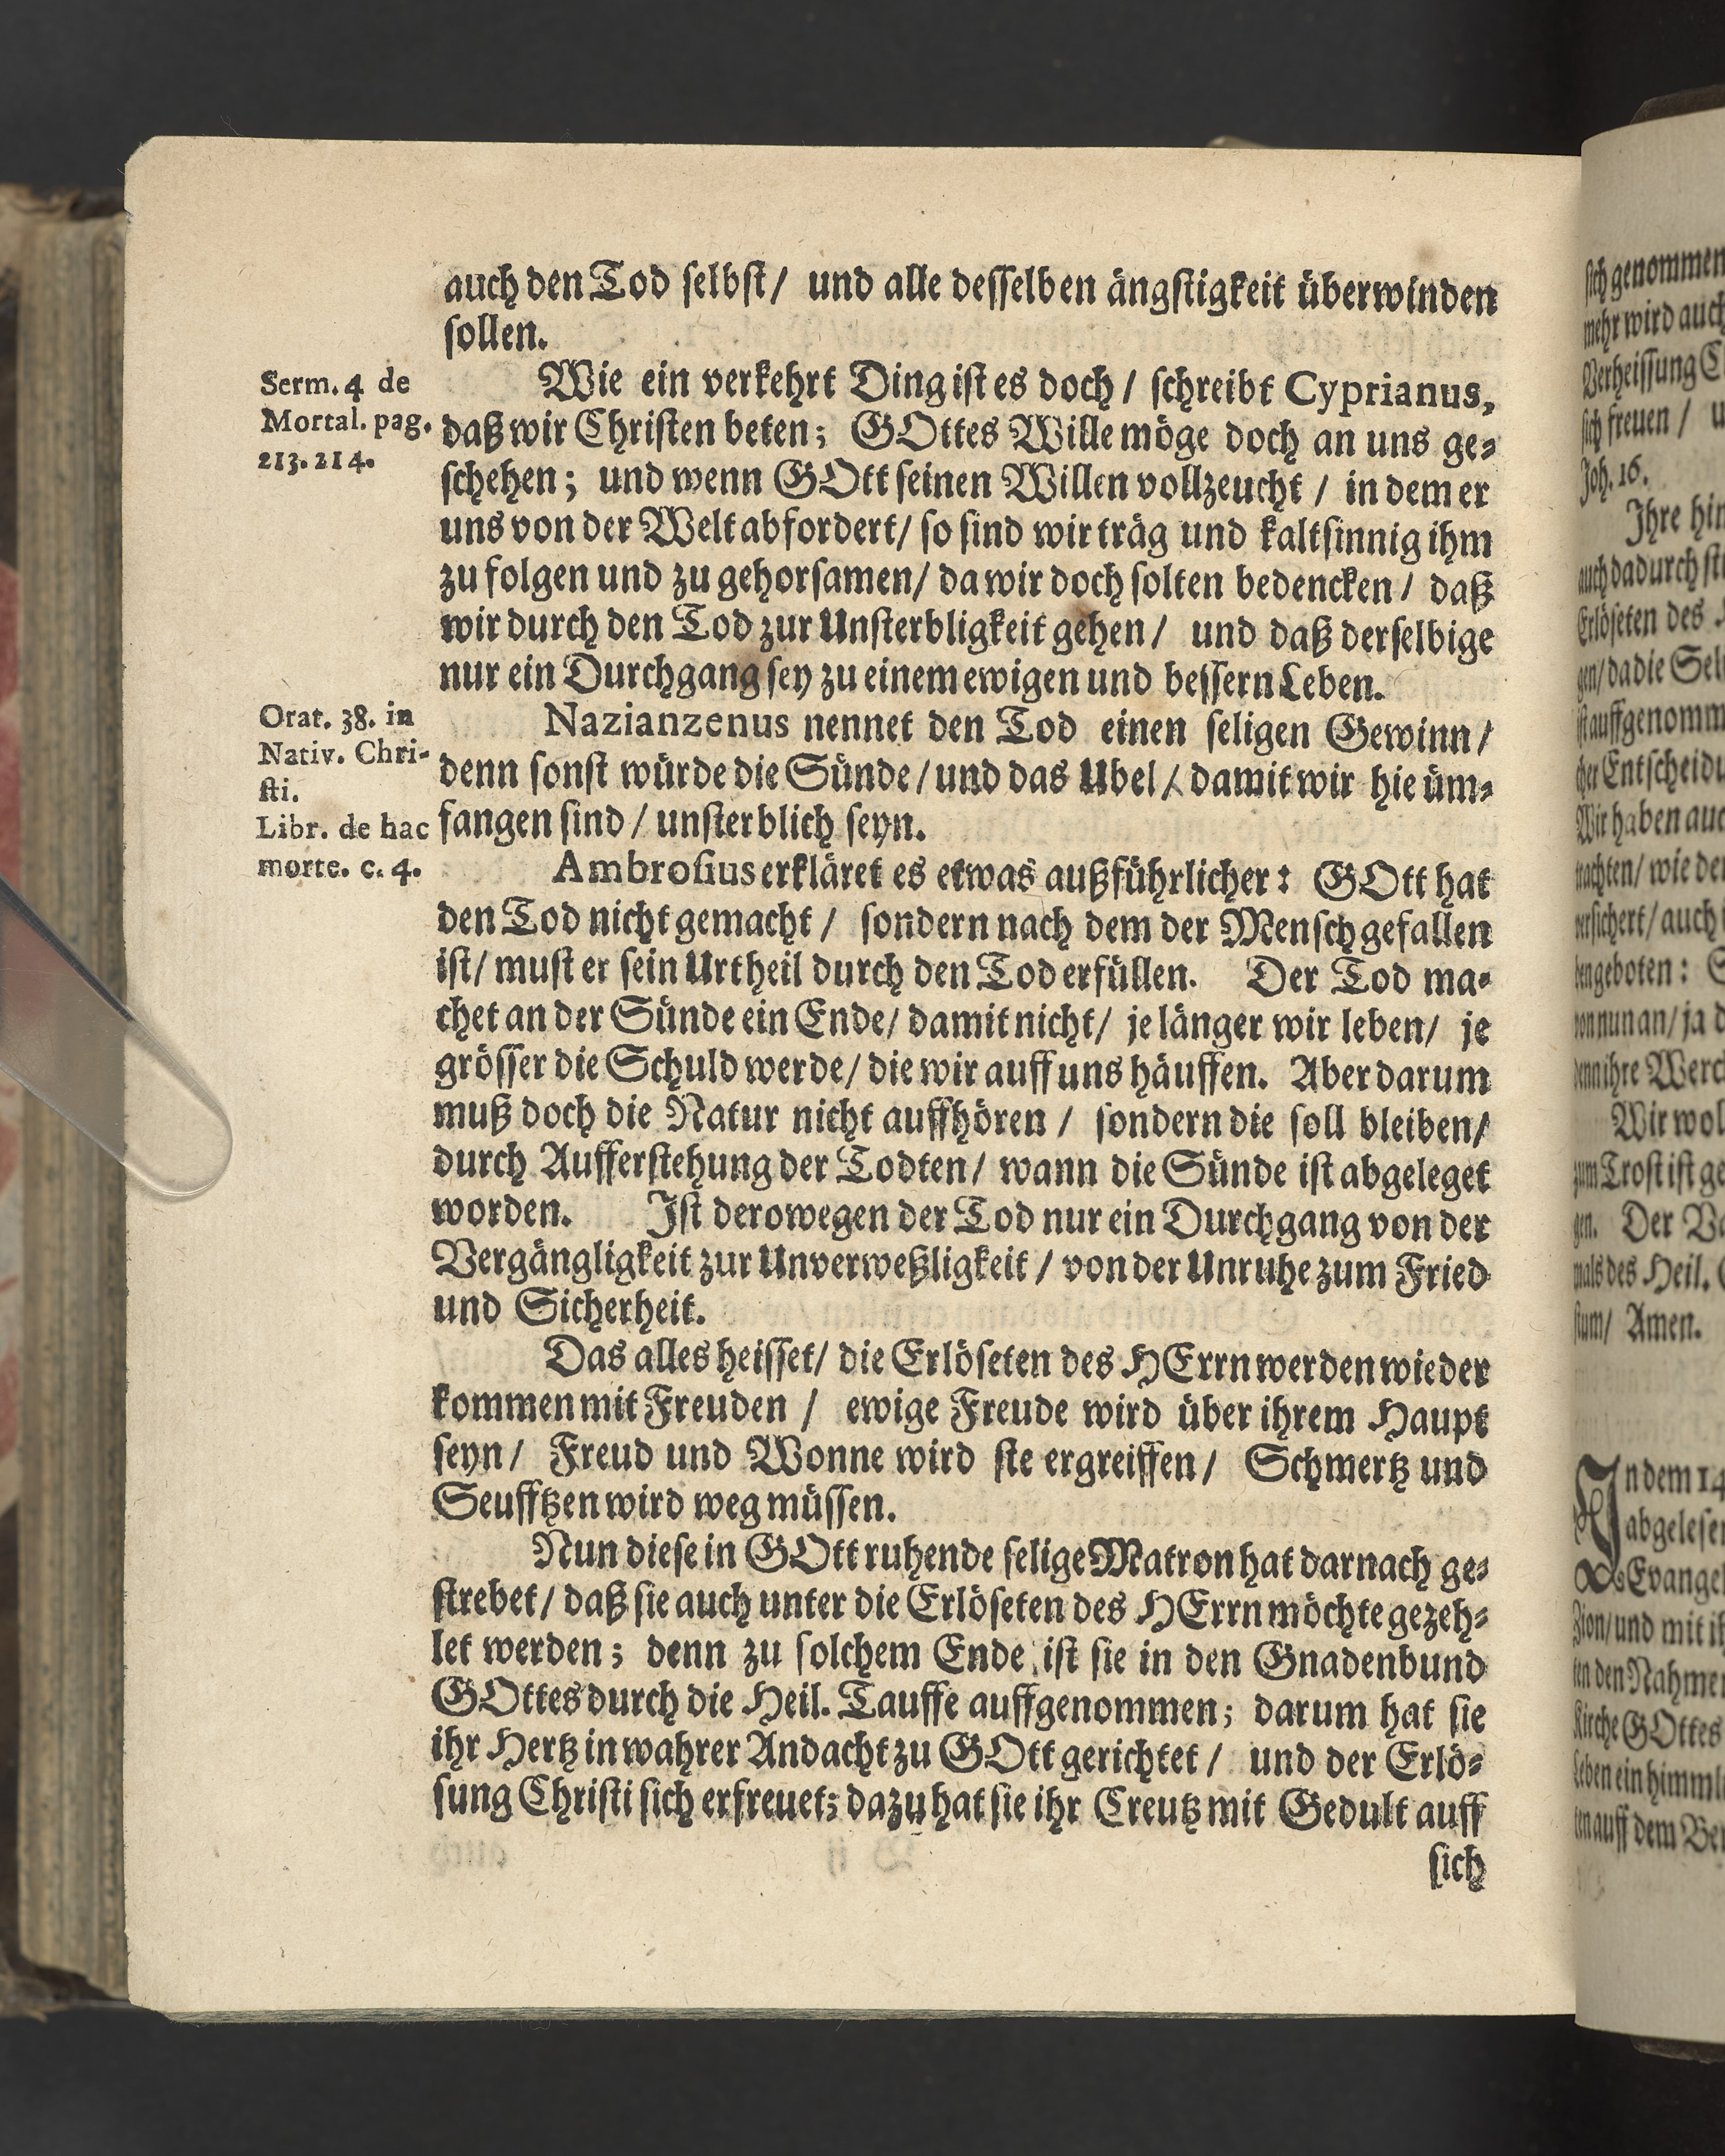 auch den Tod selbst/ und alle desselben ängstigkeit überwinden
sollen.
Serm. 4 de
Mortal. pag.
213. 214.
Wie ein verkehrt Ding ist es doch / schreibt Cyprianus,
daß wir Christen beten; GOttes Wille möge doch an uns ge-
schehen; und wenn GOtt seinen Willen vollzeucht / in dem er
uns von der Welt abfordert/ so sind wir träg und kaltsinnig ihm
zu folgen und zu gehorsamen/ da wir doch solten bedencken / daß
wir durch den Tod zur Unsterbligkeit gehen/ und daß derselbige
nur ein Durchgang sey zu einem ewigen und bessern Leben.
Orat. 38. in
Nativ. Chri-
sti.
Nazianzenus nennet den Tod einen seligen Gewinn/
denn sonst würde die Sünde/ und das Ubel/ damit wir hie üm-
fangen sind / unsterblich seyn.
Libr. de hac
morte. c. 4.
Ambrosius erkläret es etwas außführlicher: GOtt hat
den Tod nicht gemacht / sondern nach dem der Mensch gefallen
ist/ must er sein Urtheil durch den Tod erfüllen. Der Tod ma-
chet an der Sünde ein Ende/ damit nicht/ je länger wir leben/ je
grösser die Schuld werde/ die wir auff uns häuffen. Aber darum
muß doch die Natur nicht auffhören / sondern die soll bleiben/
durch Aufferstehung der Todten/ wann die Sünde ist abgeleget
worden. Ist derowegen der Tod nur ein Durchgang von der
Vergängligkeit zur Unverweßligkeit / von der Unruhe zum Fried
und Sicherheit.
Das alles heisset/ die Erlöseten des HErrn werden wieder
kommen mit Freuden / ewige Freude wird über ihrem Haupt
seyn/ Freud und Wonne wird sie ergreiffen/ Schmertz und
Seufftzen wird weg müssen.
Nun diese in GOtt ruhende selige Matron hat darnach ge-
strebet/ daß sie auch unter die Erlöseten des HErrn möchte gezeh-
let werden; denn zu solchem Ende ist sie in den Gnadenbund
GOttes durch die Heil. Tauffe auffgenommen; darum hat sie
ihr Hertz in wahrer Andacht zu GOtt gerichtet / und der Erlö-
sung Christi sich erfreuet; dazu hat sie ihr Creutz mit Gedult auff
sich
sich genommen
mehr wird auch
Verheissung
sich freuen /
Joh. 16.
Ihre
auch dadurch
Erlöseten des
gen/ da die
ist auffgenomm
der
Wir haben
/ wie
/ auch
geboten:
von nun an/ ja
denn ihre
Wir
zum Trost ist
gen. Der
mals des Heil.
/ Amen.
In dem 14
Zion/ und mit
ten den
Kirche GOttes
Leben ein
auff dem